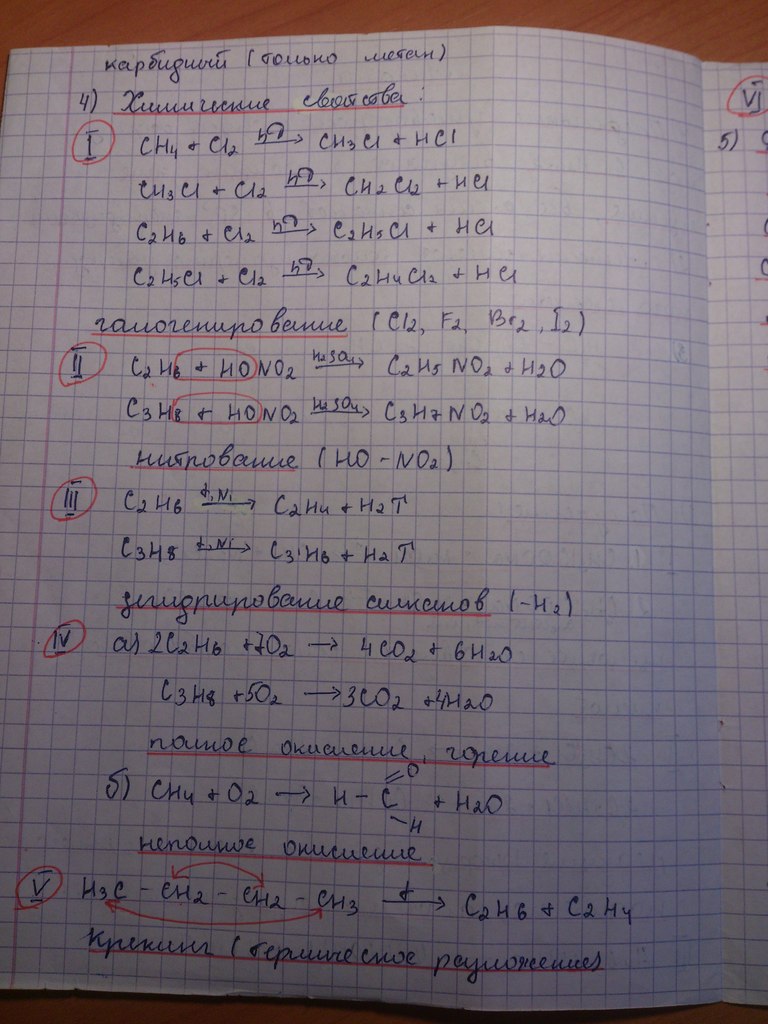 карбидный (только метан)
4) Химические свойства:
I CH4 + Cl2 hν→ CH3Cl + HCl
CH3Cl + Cl2 hν→ CH2Cl2 + HCl
C2H6 + Cl2 hν→ C2H5Cl + HCl
C2H5Cl + Cl2 hν→ C2H4Cl2 + HCl
галогенирование (Cl2, F2, Br2, I2)
II C2H6 + HONO2 H2SO4→ C2H5NO2 + H2O
C3H8 + HONO2 H2SO4→ C3H7NO2 + H2O
нитрование (HO-NO2)
III C2H6 t,Ni→ C2H4 + H2↑
C3H8 t,Ni→ C3H6 + H2↑
дегидрирование алканов (-H2)
IV а) 2C2H6 + 7O2 → 4CO2 + 6H2O
C3H8 + 5O2 → 3CO2 + 4H2O
полное окисление, горение
б) CH4 + O2 → H - C =O -H + H2O
неполное окисление
V H3C - CH2 - CH2 - CH3 t→ C2H6 + C2H4
Крекинг (термическое разложение)
VI
5)